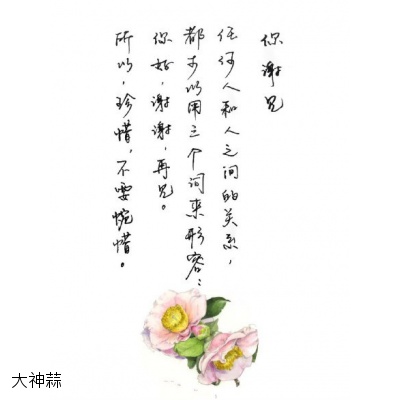 你谢见
任何人和人之间的关系，
都可以用三个词来形容：
你好，谢谢，再见。
所以，珍惜，不要惋惜。
大神蒜